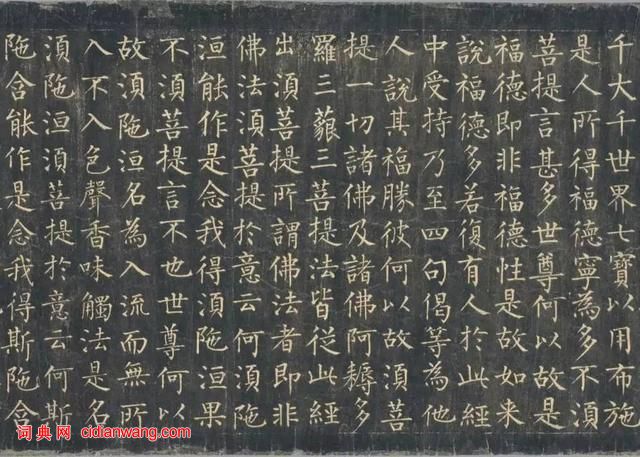 千大千世界七寶以用布施
是人所得福德寧為多不須
菩提言甚多世尊何以故是
福德即非福德性是故如来
說福德多若復有人於此經
中受持乃至四句偈等為他
人說其福勝彼何以故須菩
提一切諸佛及諸佛阿耨多
羅三藐三菩提法皆從此經
出須菩提所謂佛法者即非
佛法須菩提於意云何須陁
洹能作是念我得須陁洹果
不須菩提言不也世尊何以
故須陁洹名為入流而無所
入不入色聲香味觸法是名
須陁洹須菩提於意云何斯
陁含能作是念我得斯陁含
词典网 cidianwang.com